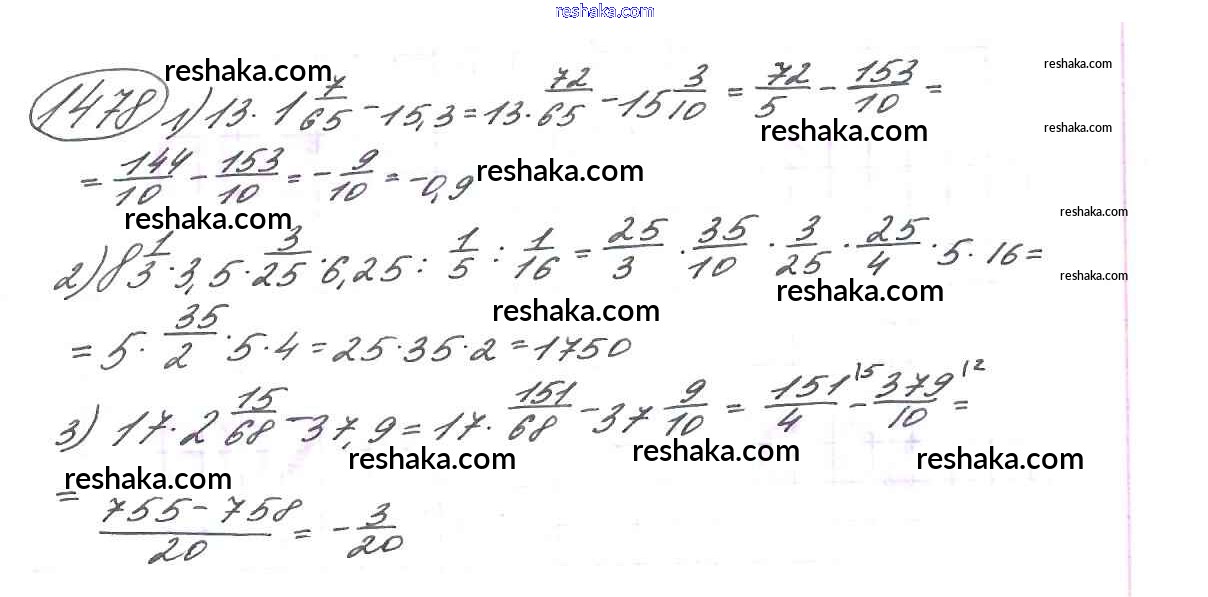 reshaka.com
reshaka.com reshaka.com
1478 1) 13 · 1 7/65 - 15,3 = 13 · 72/65 - 15 3/10 = 72/5 - 153/10 =
reshaka.com reshaka.com
= 144/10 - 153/10 = - 9/10 = -0,9 reshaka.com
reshaka.com reshaka.com
2) 8 1/3 · 3,5 · 3/25 · 6,25 : 1/5 : 1/16 = 25/3 · 35/10 · 3/25 · 25/4 · 5 · 16 =
reshaka.com reshaka.com reshaka.com
= 5 · 35/2 · 5 · 4 = 25 · 35 · 2 = 1750
3) 17 · 2 15/68 - 37,9 = 17 · 151/68 - 37 9/10 = 151/4 15 - 379/10 12 =
reshaka.com reshaka.com reshaka.com reshaka.com
= 755 - 758/20 = - 3/20